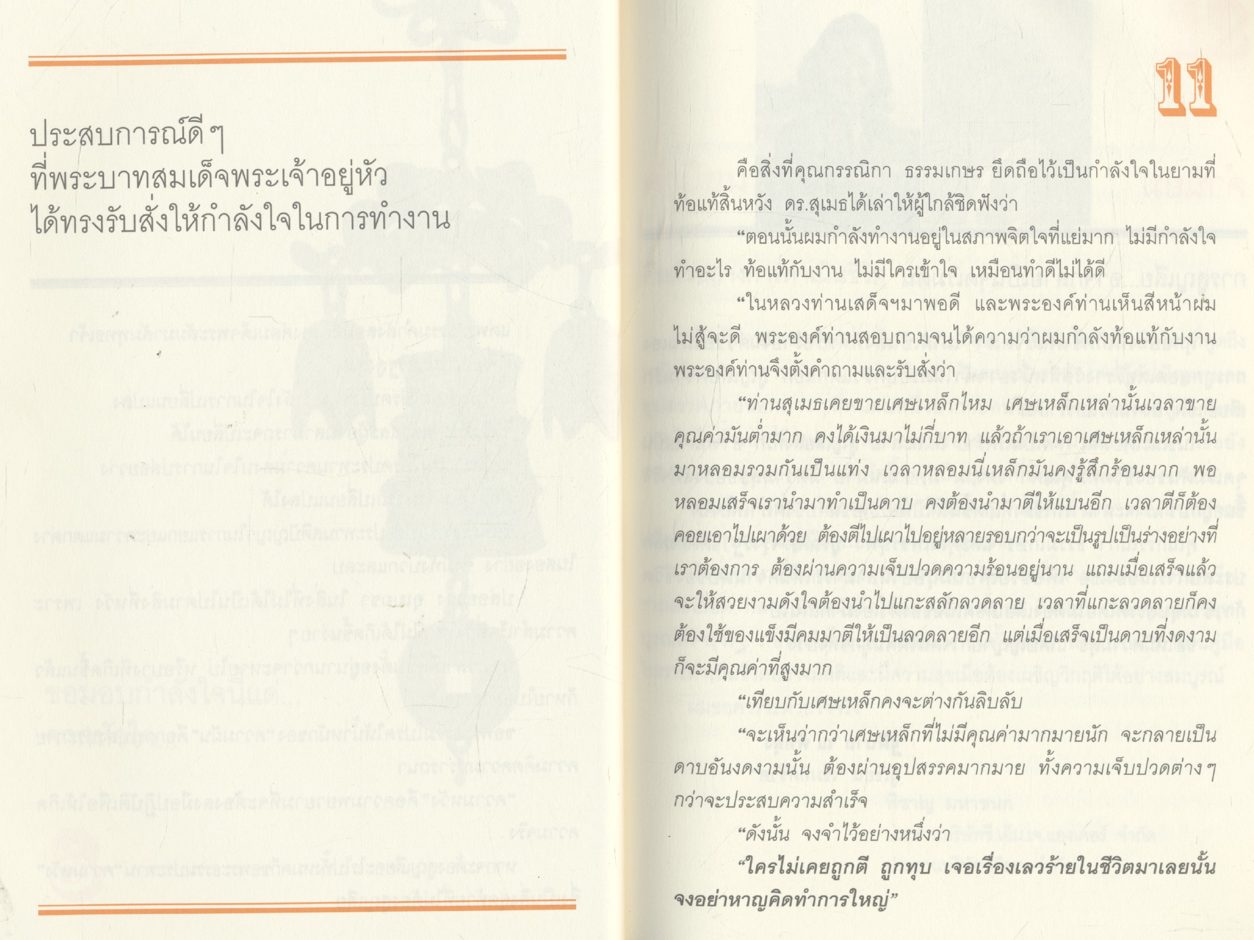 ประสบการณ์ดี ๆ
ที่พระบาทสมเด็จพระเจ้าอยู่หัว
ได้ทรงรับสั่งให้กำลังใจในการทำงาน
11
คือสิ่งที่คุณกรรณิกา ธรรมเกษร ยึดถือไว้เป็นกำลังใจในยามที่
ท้อแท้สิ้นหวัง ดร.สุเมธได้เล่าให้ผู้ใกล้ชิดฟังว่า
“ตอนนั้นผมกำลังทำงานอยู่ในสภาพจิตใจที่แย่มาก ไม่มีกำลังใจ
ทำอะไร ท้อแท้กับงาน ไม่มีใครเข้าใจ เหมือนทำดีไม่ได้ดี
“ในหลวงท่านเสด็จฯมาพอดี และพระองค์ท่านเห็นสีหน้าผม
ไม่สู้จะดี พระองค์ท่านสอบถามจนได้ความว่าผมกำลังท้อแท้กับงาน
พระองค์ท่านจึงตั้งคำถามและรับสั่งว่า
“ท่านสุเมธเคยขายเศษเหล็กไหม เศษเหล็กเหล่านั้นเวลาขาย
คุณค่ามันต่ำมาก คงได้เงินมาไม่กี่บาท แล้วถ้าเราเอาเศษเหล็กเหล่านั้น
มาหลอมรวมกันเป็นแท่ง เวลาหลอมนี่เหล็กมันคงรู้สึกร้อนมาก พอ
หลอมเสร็จเรานำมาทำเป็นดาบ คงต้องนำมาตีให้แบนอีก เวลาตีก็ต้อง
คอยเอาไปเผาด้วย ต้องตีไปเผาไปอยู่หลายรอบกว่าจะเป็นรูปเป็นร่างอย่างที่
เราต้องการ ต้องผ่านความเจ็บปวดความร้อนอยู่นาน แถมเมื่อเสร็จแล้ว
จะให้สวยงามดังใจต้องนำไปแกะสลักลวดลาย เวลาที่แกะลวดลายก็คง
ต้องใช้ของแข็งมีคมมาตีให้เป็นลวดลายอีก แต่เมื่อเสร็จเป็นดาบที่งดงาม
ก็จะมีคุณค่าที่สูงมาก
“เทียบกับเศษเหล็กคงจะต่างกันลิบลับ
“จะเห็นว่ากว่าเศษเหล็กที่ไม่มีคุณค่ามากมายนัก จะกลายเป็น
ดาบอันงดงามนั้น ต้องผ่านอุปสรรคมากมาย ทั้งความเจ็บปวดต่าง ๆ
กว่าจะประสบความสำเร็จ
“ดังนั้น จงจำไว้อย่างหนึ่งว่า
“ใครไม่เคยถูกตี ถูกทุบ เจอเรื่องเลวร้ายในชีวิตมาเลยนั้น
จงอย่าหาญคิดทำการใหญ่”